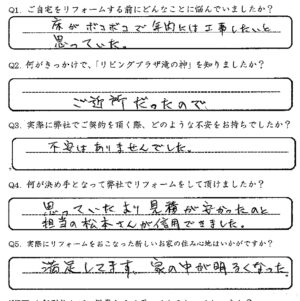 Q1. ご自宅をリフォームする前にどんなことに悩んでいましたか？
床がボコボコで年内には工事したいと
思っていた。
Q2. 何がきっかけで、「リビングプラザ滝の神」を知りましたか？
ご近所だったので
Q3. 実際に弊社でご契約を頂く際、どのような不安をお持ちでしたか？
不安はありませんでした。
Q4. 何が決め手となって弊社でリフォームをして頂けましたか？
思っていたより見積が安かったのと
担当の松本さんが信用できました。
Q5. 実際にリフォームをおこなった新しいお家の住み心地はいかがですか？
満足してます。家の中が明るくなった